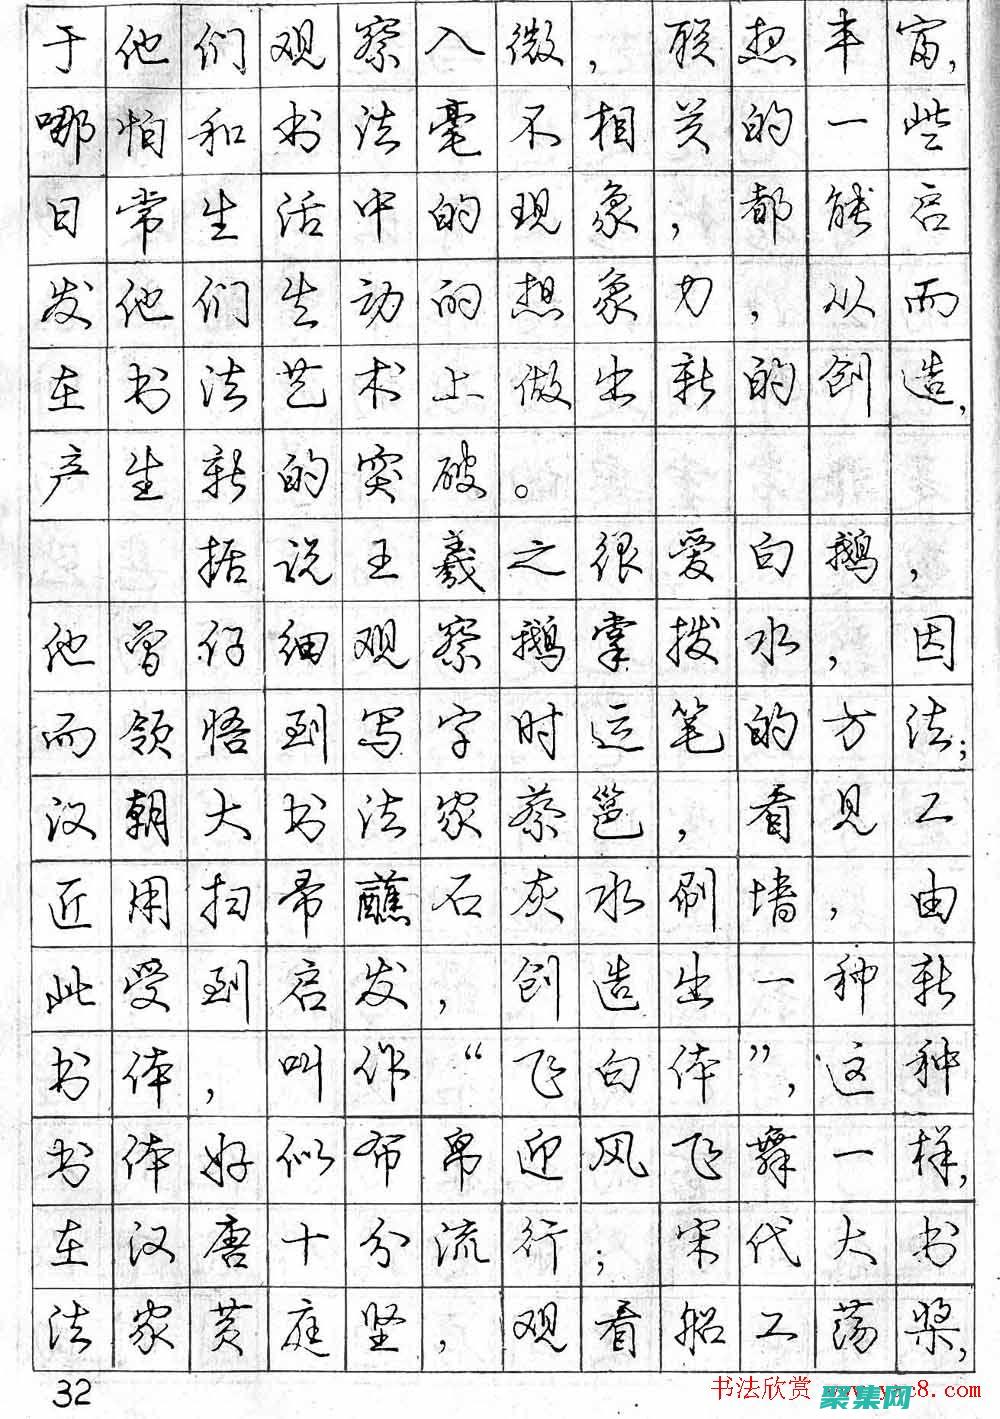 于他们观察入微，联想丰富，
哪怕和书法毫不相关的一些
日常生活中的现象，都能启
发他们生动的想象力，从而
在书法艺术上做出新的创造，
产生新的突破。
据说王羲之很爱白鹅，
他曾仔细观察鹅掌拨水，因
而领悟到写字时运笔的方法；
汉朝大书法家蔡邕，看见工
匠用扫帚蘸石灰水刷墙，由
此受到启发，创造出一种新
书体，叫作“飞白体”，这种
书体好似布帛迎风飞舞一样，
在汉唐十分流行；宋代大书
法家黄庭坚，观看船工荡桨，
32
书法欣赏 www.yac8.com
聚集网